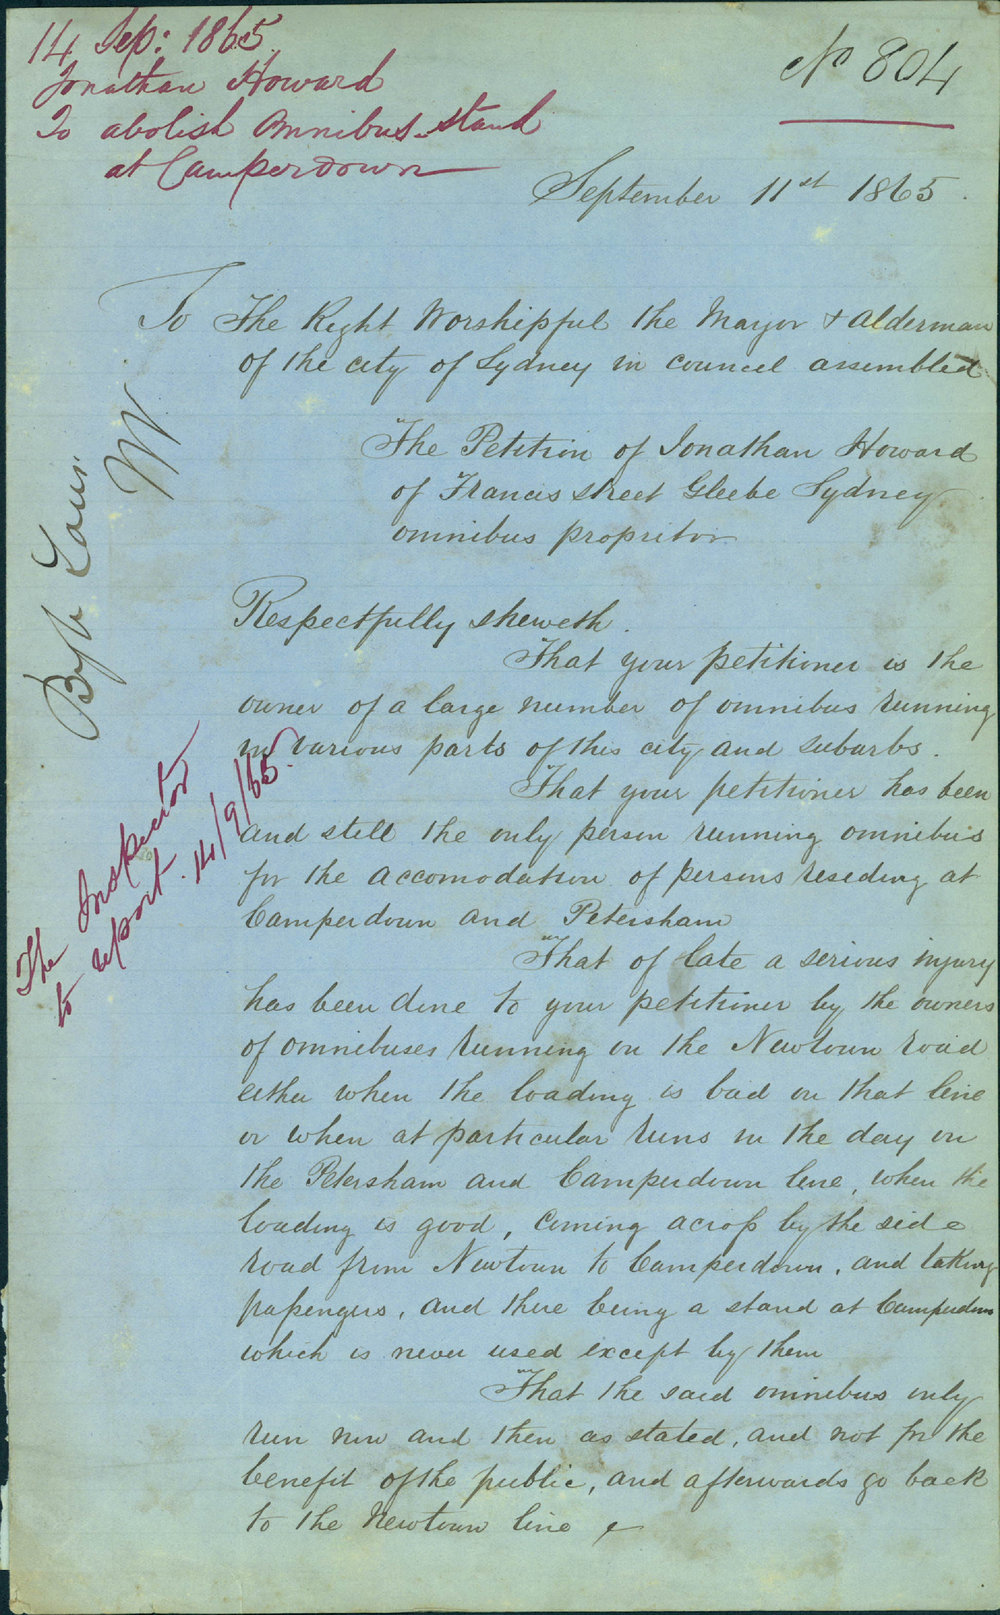 14 Sep: 1865.
Jonathan Howard
To abolish Omnibus-stand
at Camperdown
No 804
September 11st 1865.
To The Right Worshipful the Mayor & alderman
of the city of Sydney in council assembled
The Petition of Jonathan Howard
of Francis street Glebe Sydney
omnibus propritor
Respectfully sheweth.
That your petitioner is the
owner of a large number of omnibus running
in various parts of this city and suburbs.
That your petitioner has been
and still the only person running omnibus
for the accomodation of persons residing at
Camperdown and Petersham
That of late a serious injury
has been done to your petitioner by the owners
of omnibuses running on the Newtown road
either when the loading is bad on that line
or when at particular runs in the day on
the Petersham and Camperdown line, when the
loading is good, coming across by the side
road from Newtown to Camperdown, and taking
passengers, and there being a stand at Camperdown
which is never used except by them
That the said omnibus only
run now and then as stated, and not for the
benefit of the public, and afterwards go back
to the Newtown line
The Inspector
to report. 14/9/65.